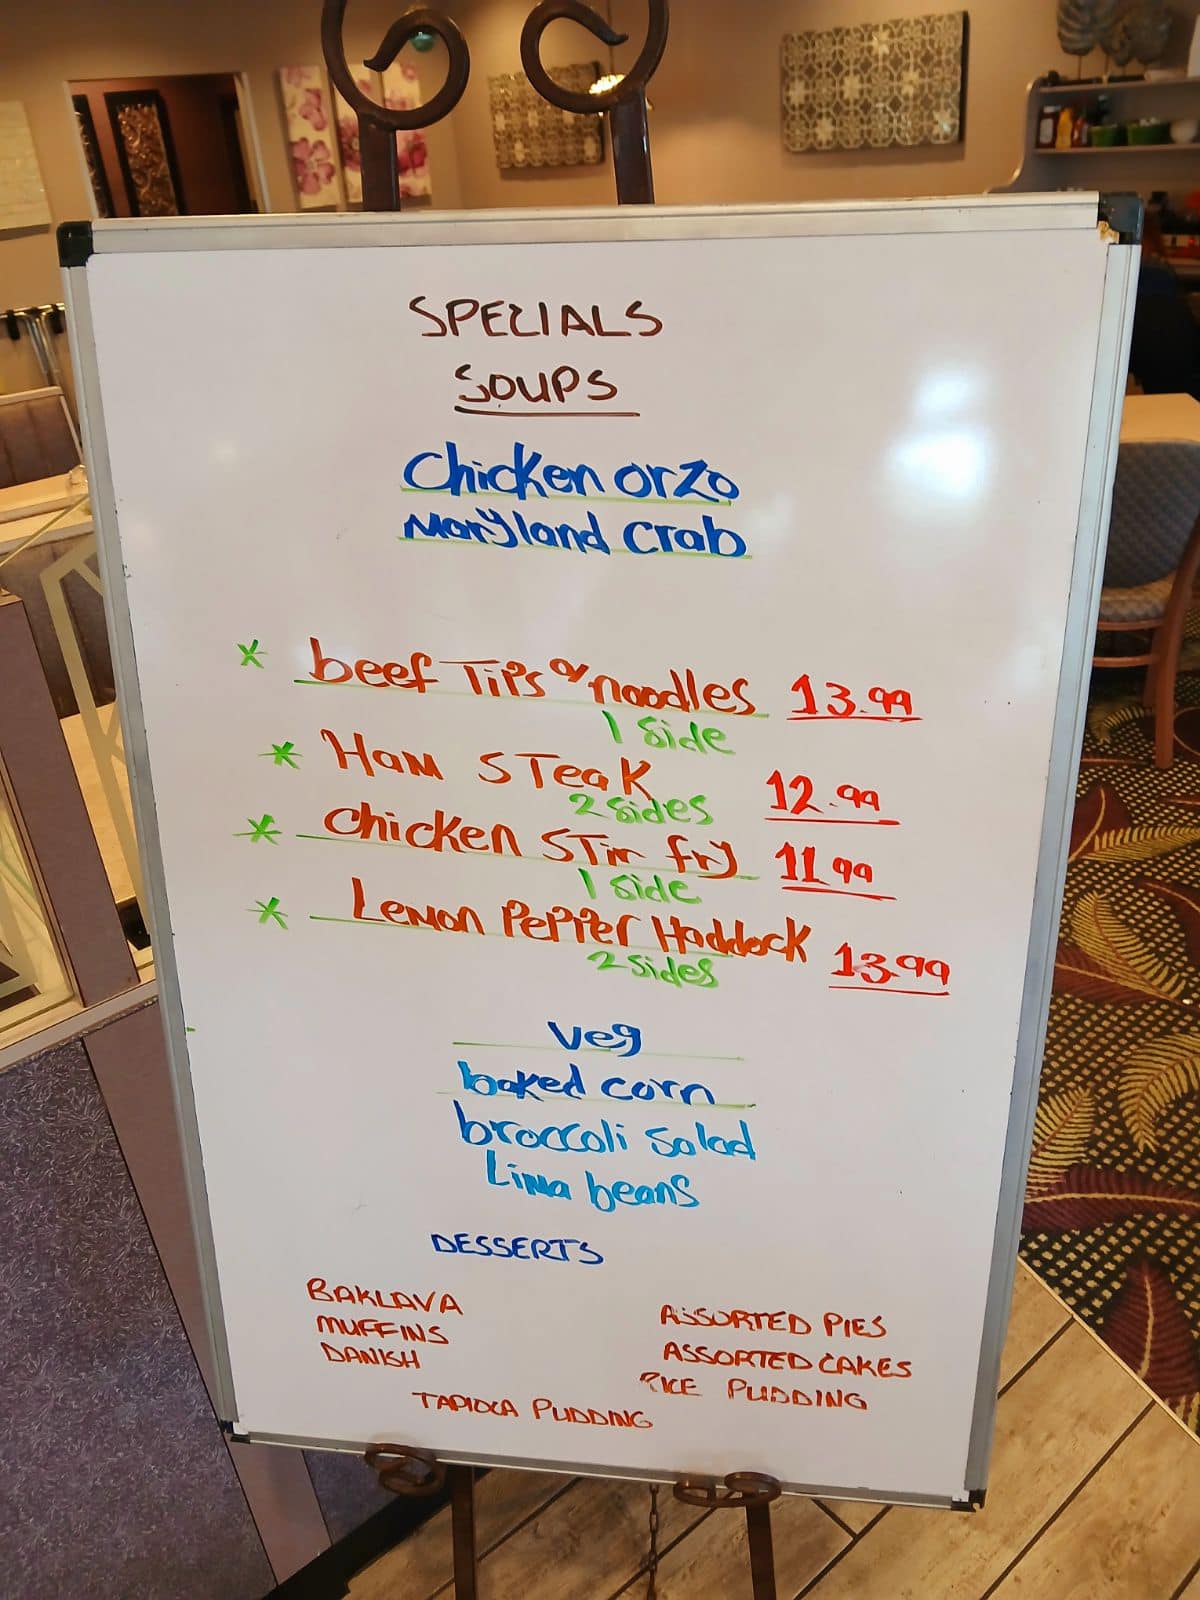 SPECIALS
SOUPS
Chicken orzo
Maryland Crab
* beef Tips o/ noodles 13.99
1 Side
* Ham STeaK 12.99
2 Sides
* Chicken STir fry 11.99
1 Side
* Lemon PePPer Haddock 13.99
2 Sides
Veg
baked corn
broccoli Salad
Lima beans
DESSERTS
BAKLAVA
MUFFINS
DANISH
ASSORTED PIES
ASSORTED CAKES
RICE PUDDING
TAPIOCA PUDDING